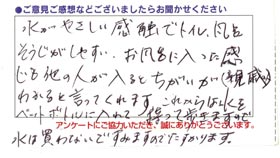 ●ご意見ご感想などございましたらお聞かせください
水がやさしい感触でトイレ、風呂
そうじがしやすい。お風呂に入った感
じも他の人が入るとちがいが(親戚)
わかると言ってくれます。これからはしくを
ペットボトルに入れて持って歩きますので
アンケートにご協力いただき、誠にありがとうございます。
水は買わないですみますのでたすかります。